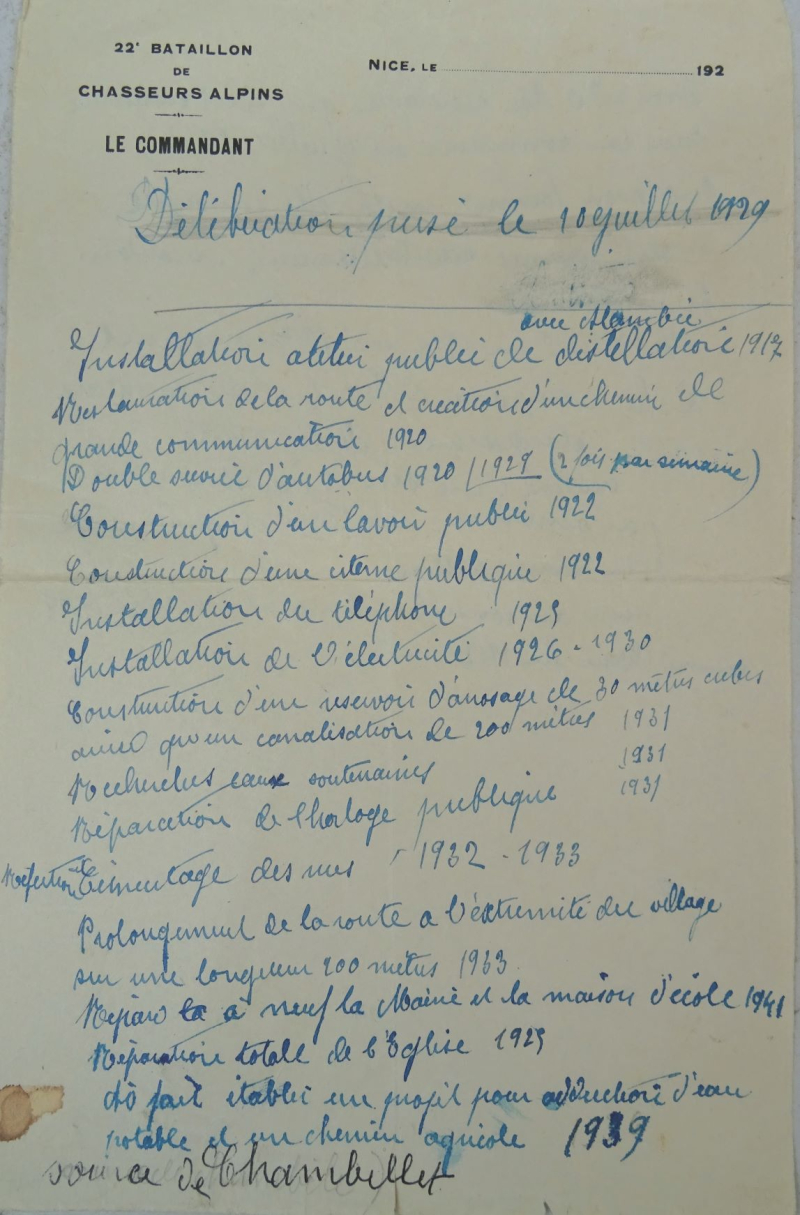 22e BATAILLON
DE
CHASSEURS ALPINS
LE COMMANDANT
NICE, LE 192
Délibération prise le 10 juillet 1929
avec Alambic
Installation atelier public de distillation 1917
Restauration de la route et création d'un chemin de
grande communication 1920
Double service d'autobus 1920 / 1929 (2 fois par semaine)
Construction d'un lavoir public 1922
Construction d'une citerne publique 1922
Installation du téléphone 1925
Installation de l'électricité 1926 - 1930
Construction d'un reservoir d'arrosage de 30 mètres cubes
ainsi qu'un canalisation de 200 mètres 1931
Recherches eaux souterraines 1931
Réparation de l'horloge publique 1931
Refection et Cimentage des rues 1932 - 1933
Prolongement de la route a l'éxtremité du village
sur une longueur 200 mètres 1933
Réparé à neuf la Mairie et la maison d'école 1941
Réparation totale de l'Eglise 1925
A fait établir un projet pour adduction d'eau
potable et un chemin agricole 1939
source de Chambellet